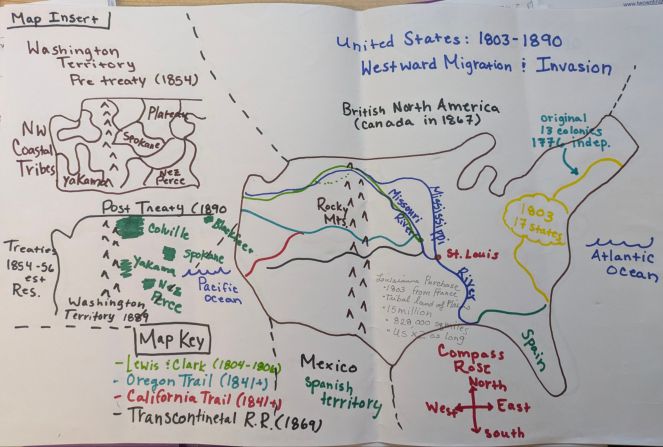 Map Insert
Washington
Territory
Pre treaty (1854)
Plateau
NW
Coastal
Tribes
Spokane
Yakama
Nez
Perce
Post Treaty (1890
Colville
Spokane
Yakama
Nez
Perce
Treaties
1854-56
est
Res.
Washington
Territory 1889
Pacific
Ocean
Map Key
- Lewis & Clark (1804-1806)
- Oregon Trail (1841+)
- California Trail (1841+)
- Transcontinetal R.R. (1869)
United States: 1803-1890
Westward Migration & Invasion
British North America
(Canada in 1867)
original
13 colonies
1776 indep.
1803
17 states
Atlantic
Ocean
Rocky
Mts.
Missouri
River
Mississippi
River
St. Louis
Louisiana Purchase
• 1803 from France
• Tribal land of Plains
• 15 million
• 828,000 sq miles
• US x2 as long
Spain
Mexico
Spanish
territory
Compass
Rose
North
West
East
South